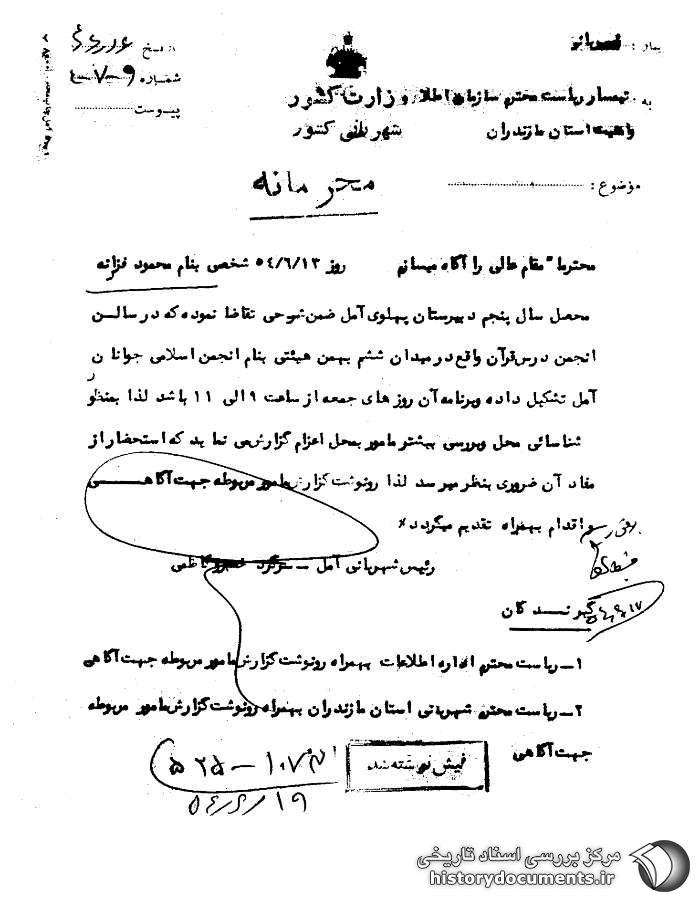 وزارت کشور
شهربانی کشور
تاریخ
شماره
پیوست
به تیمسار ریاست محترم سازمان اطلاعات
وامنیت استان مازندران
موضوع:
محرمانه
محترما" مقام عالی را آگاه میسازم روز ۵٤/٦/۱۳ شخصی بنام محمود فرزانه
محصل سال پنجم دبیرستان پهلوی آمل ضمن شرحی تقاضا نموده که در سالن
انجمن درس قرآن واقع در میدان ششم بهمن هیئتی بنام انجمن اسلامی جوانان
آمل تشکیل داده وبرنامه آن روز های جمعه از ساعت ۹ الی ۱۱ باشد لذا بمنظور
شناسائی محل وبررسی بیشتر مامور بمحل اعزام گزارش می نماید که استحضار از
مفاد آن ضروری بنظر میرسد لذا رونوشت گزارش مامور مربوطه جهت آگاهی
اقدام بهمراه تقدیم میگردد*
رئیس شهربانی آمل ـ سرگرد کاظمی
گیرندگان
۱ـ ریاست محترم اداره اطلاعات بهمراه رونوشت گزارش مامور مربوطه جهت آگاهی
۲ـ ریاست محترم شهربانی استان مازندران بهمراه رونوشت گزارش مامور مربوطه
جهت آگاهی
فیش نوشته شد
مرکز بررسی اسناد تاریخی
historydocuments.ir